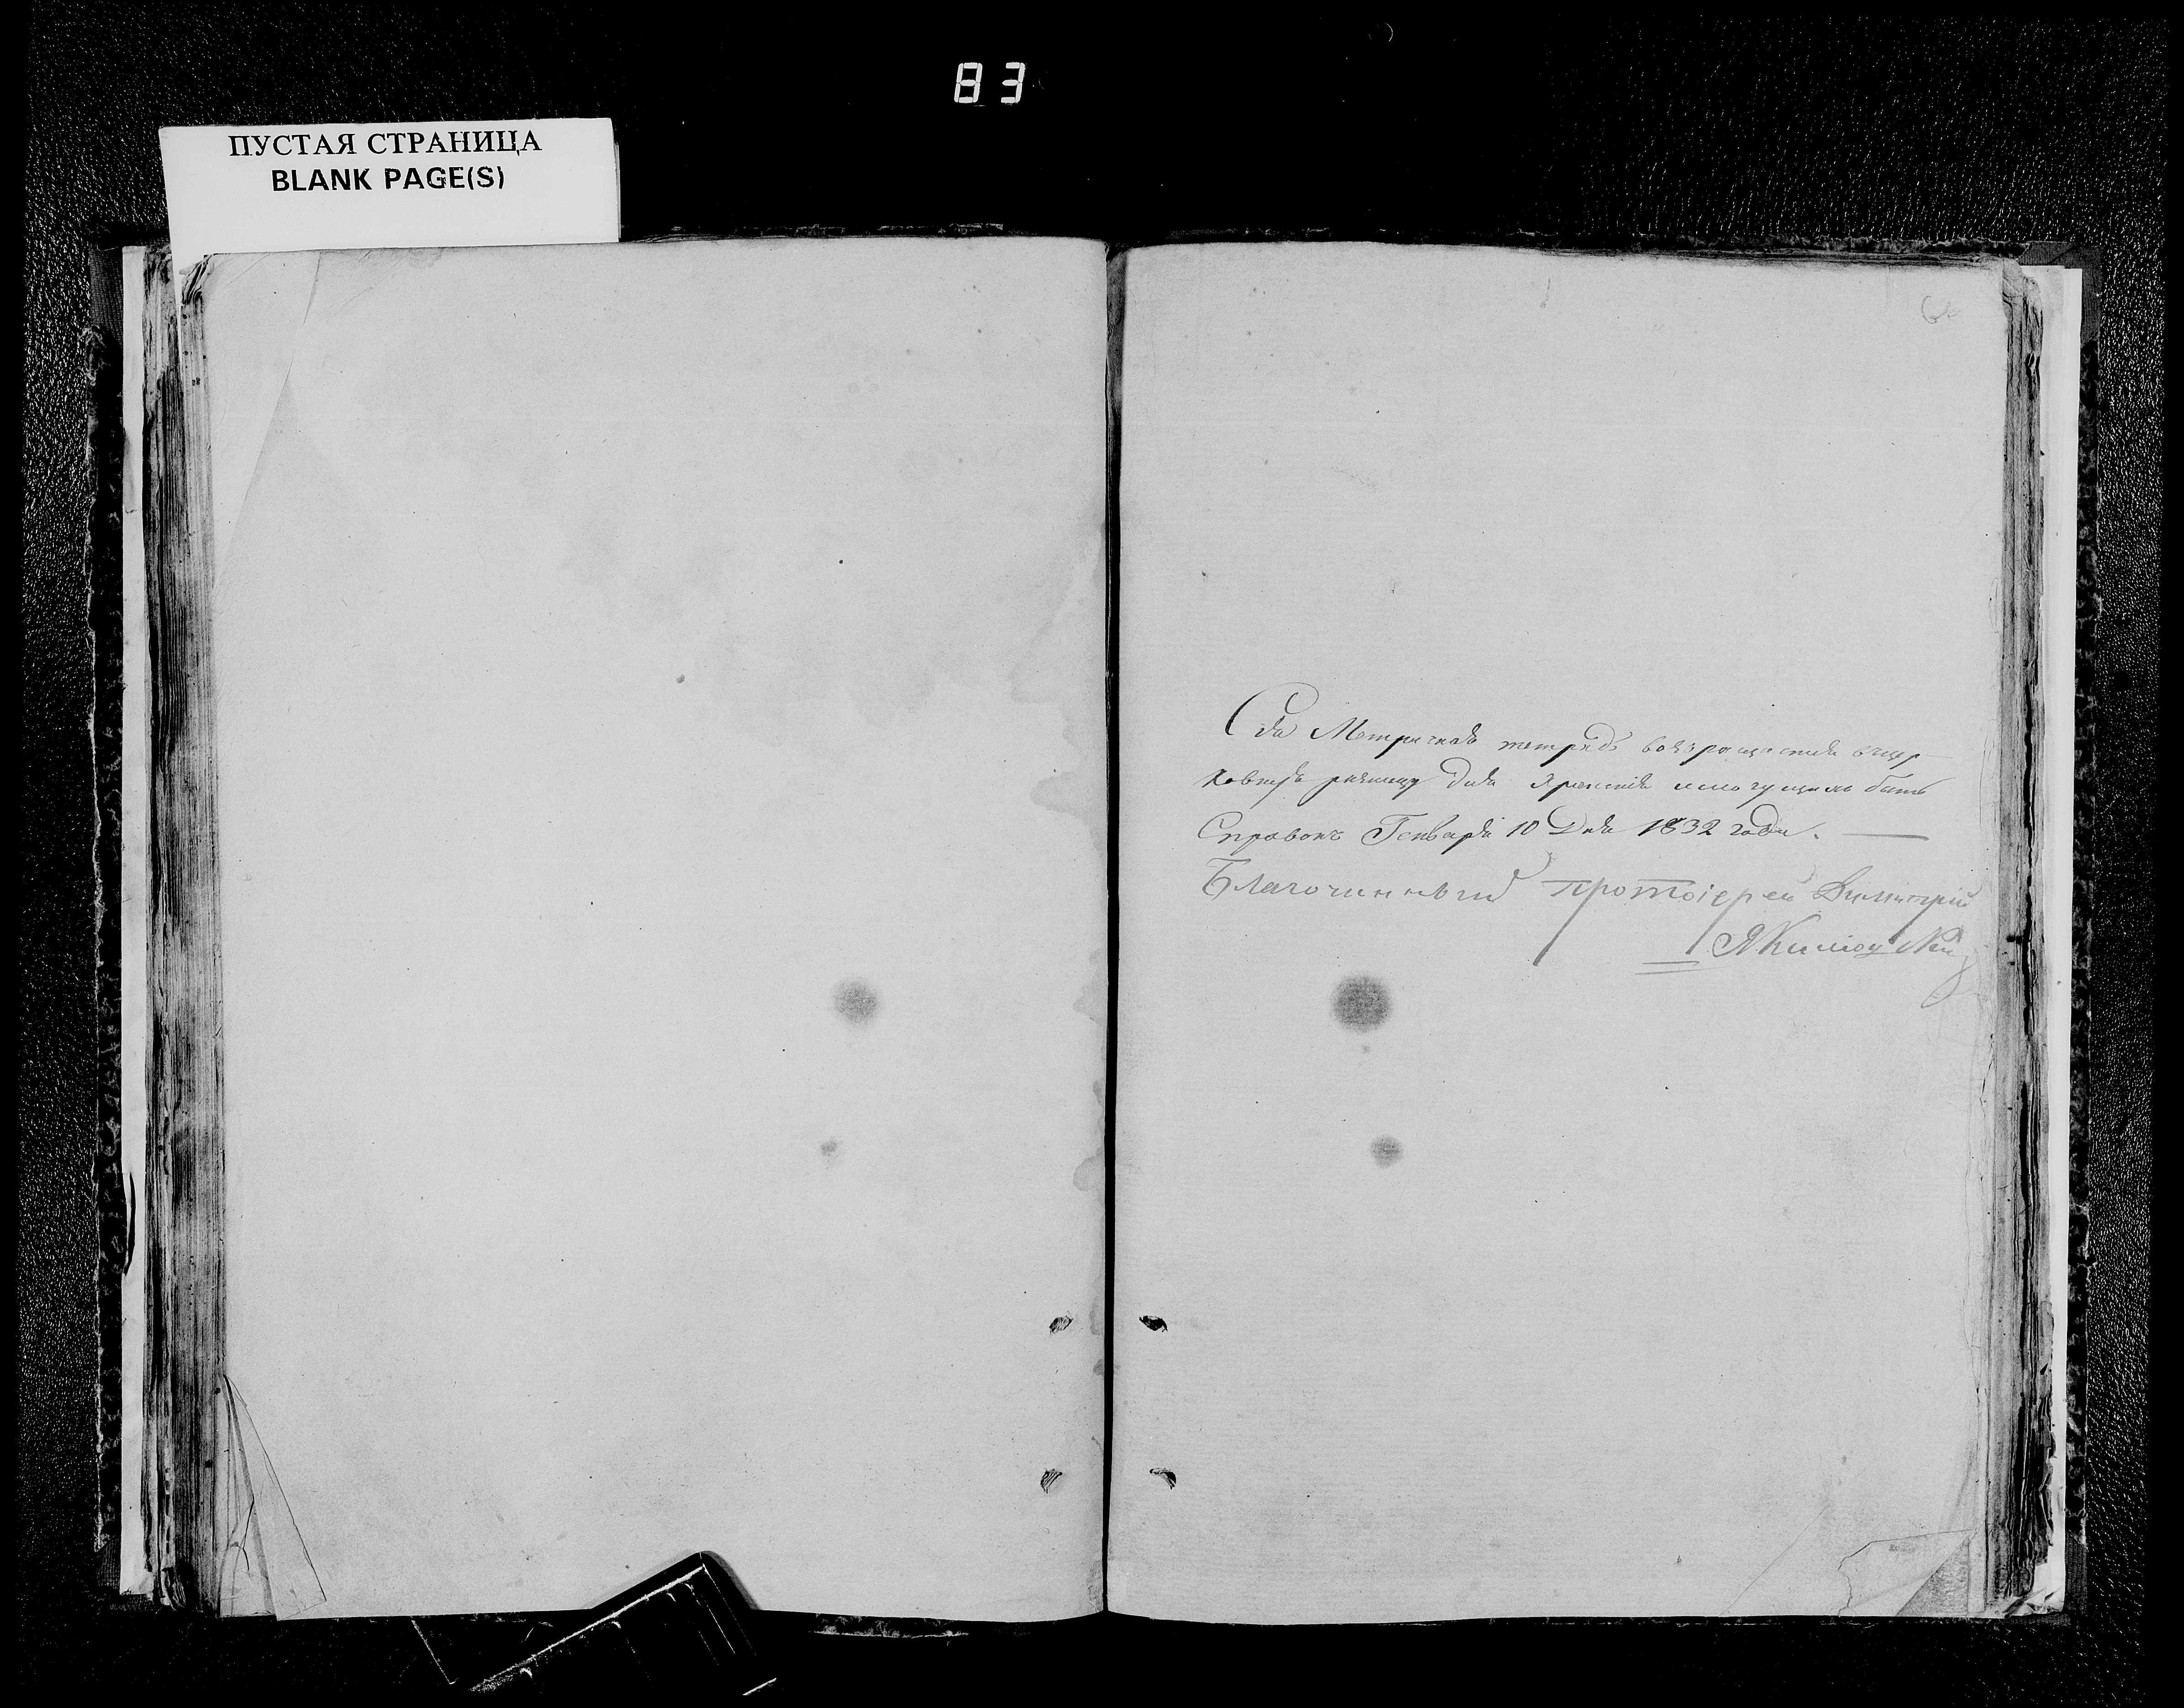 83
ПУСТАЯ СТРАНИЦА
BLANK PAGE(S)
Сія Метрическая тетрадь возвращается въ цер
ковную ризницу для храненія и могущихъ быть
Справокъ Генваря 10 Дня 1832 года.
Благочинный протоіерей Димитрій